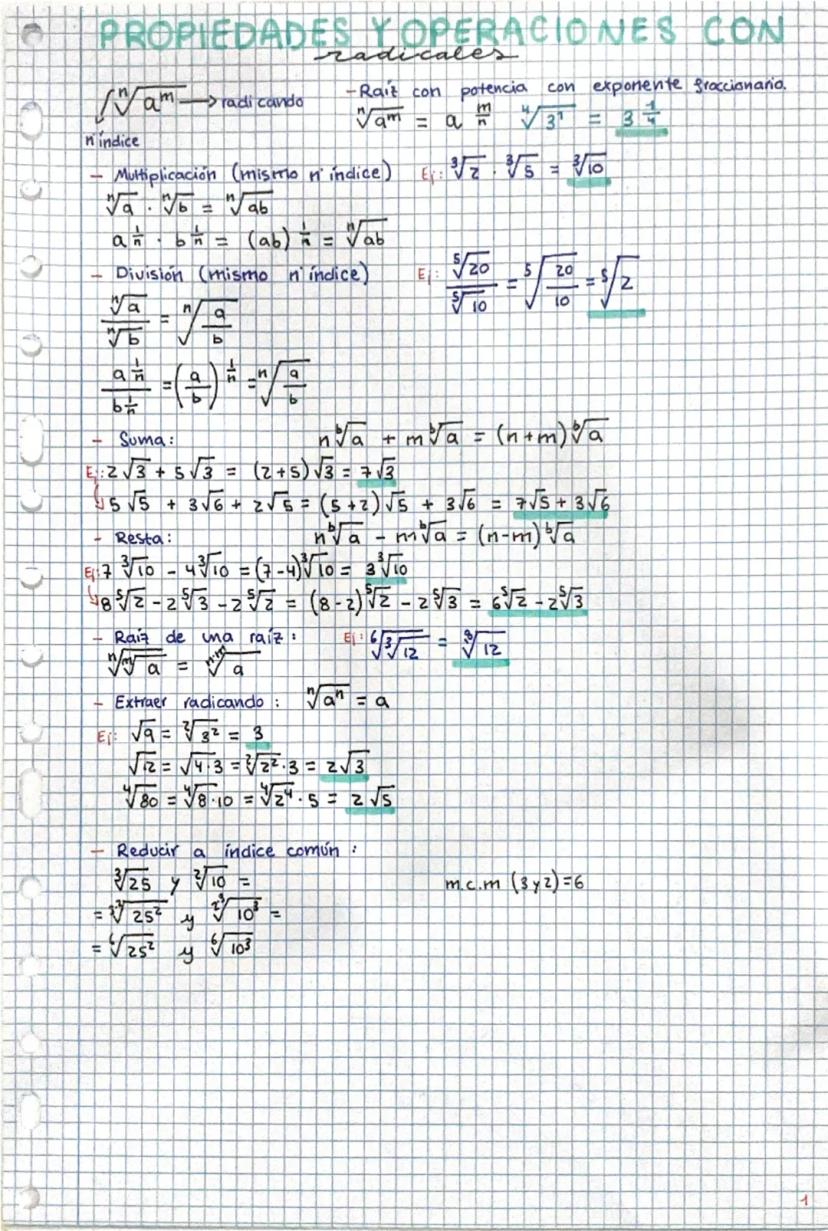 PROPIEDADES Y OPERACIONES CON
radicales
ⁿ√aᵐ → radicando
nº índice
- Raíz con potencia con exponente fraccionario.
ⁿ√aᵐ = a^(m/n) ⁴√3¹ = 3^(1/4)
- Multiplicación (mismo nº índice) Ej: ³√2 · ³√5 = ³√10
ⁿ√a · ⁿ√b = ⁿ√ab
a^(1/n) · b^(1/n) = (ab)^(1/n) = ⁿ√ab
- División (mismo nº índice) Ej: ⁵√20 / ⁵√10 = ⁵√(20/10) = ⁵√2
ⁿ√a / ⁿ√b = ⁿ√(a/b)
a^(1/n) / b^(1/n) = (a/b)^(1/n) = ⁿ√(a/b)
- Suma: n ᵇ√a + m ᵇ√a = (n+m) ᵇ√a
Ej: 2√3 + 5√3 = (2+5)√3 = 7√3
5√5 + 3√6 + 2√5 = (5+2)√5 + 3√6 = 7√5 + 3√6
- Resta: n ᵇ√a - m ᵇ√a = (n-m) ᵇ√a
Ej: 7 ³√10 - 4 ³√10 = (7-4) ³√10 = 3 ³√10
8 ⁵√2 - 2 ⁵√3 - 2 ⁵√2 = (8-2) ⁵√2 - 2 ⁵√3 = 6 ⁵√2 - 2 ⁵√3
- Raíz de una raíz: Ej: ⁶√³√12 = ⁹√12
ⁿ√ᵐ√a = ⁿ·ᵐ√a
- Extraer radicando: ⁿ√aⁿ = a
Ej: √9 = ²√3² = 3
√12 = √4·3 = ²√2²·3 = 2√3
⁴√80 = ⁴√8·10 = ⁴√2⁴·5 = 2√5
- Reducir a índice común:
³√25 y ²√10 = m.c.m (3 y 2) = 6
= ³·²√25² y ²·³√10³ =
= ⁶√25² y ⁶√10³
1